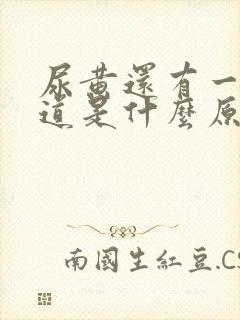 尿黄還有一
道是什麼原
南國生紅豆.CS